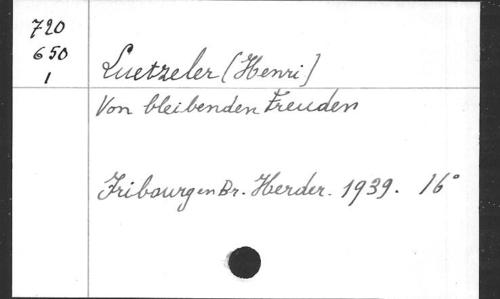 720
650
1
Luetzeler (Henri)
Von bleibenden Freuden
Fribourg en Br. Herder. 1939. 16°